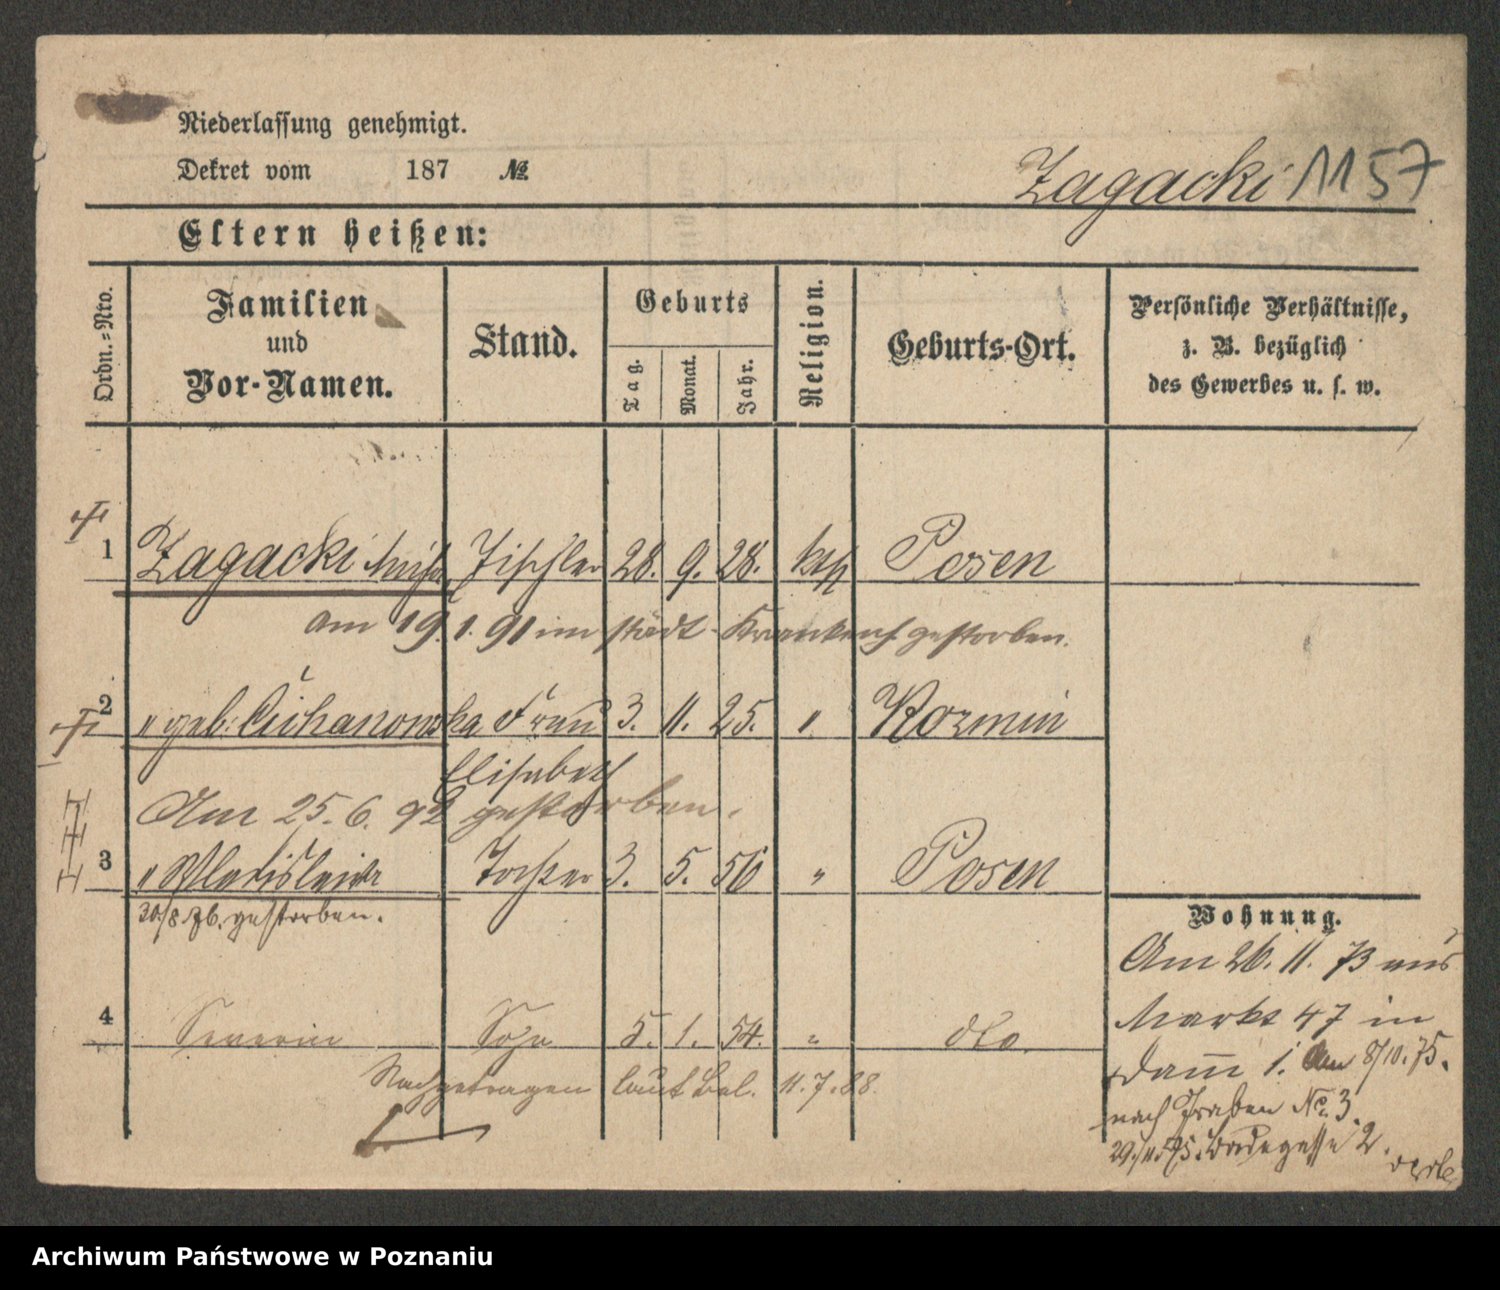 Niederlassung genehmigt.
Dekret vom 187 №
Zagacki 1157
Eltern heißen:
Ordn.=Nro.
Familien
und
Vor-Namen.
Stand.
Geburts
Tag.
Monat.
Jahr.
Religion.
Geburts-Ort.
Persönliche Verhältnisse,
z. B. bezüglich
des Gewerbes u. s. w.
1 Zagacki Tischler 28. 9. 28. kth Posen
am 19. 1. 91 im städt. Krankenh gestorben.
2 " geb. Cichanowska Frau 3. 11. 25. " Kozmin
Elisabeth
Am 25. 6. 92 gestorben.
3 " Wladislawa Tochter 3. 5. 56 " Posen
30/8. 76. gestorben.
4 Severin Sohn 5. 1. 54. " dto
Nachgetragen laut Bel. 11. 7. 88.
Wohnung.
Am 26. 11. 73 aus
Markt 47 in
Damm 1. Am 8/10. 75.
nach Graben No. 3.
29./11. 75. 2.
Archiwum Państwowe w Poznaniu